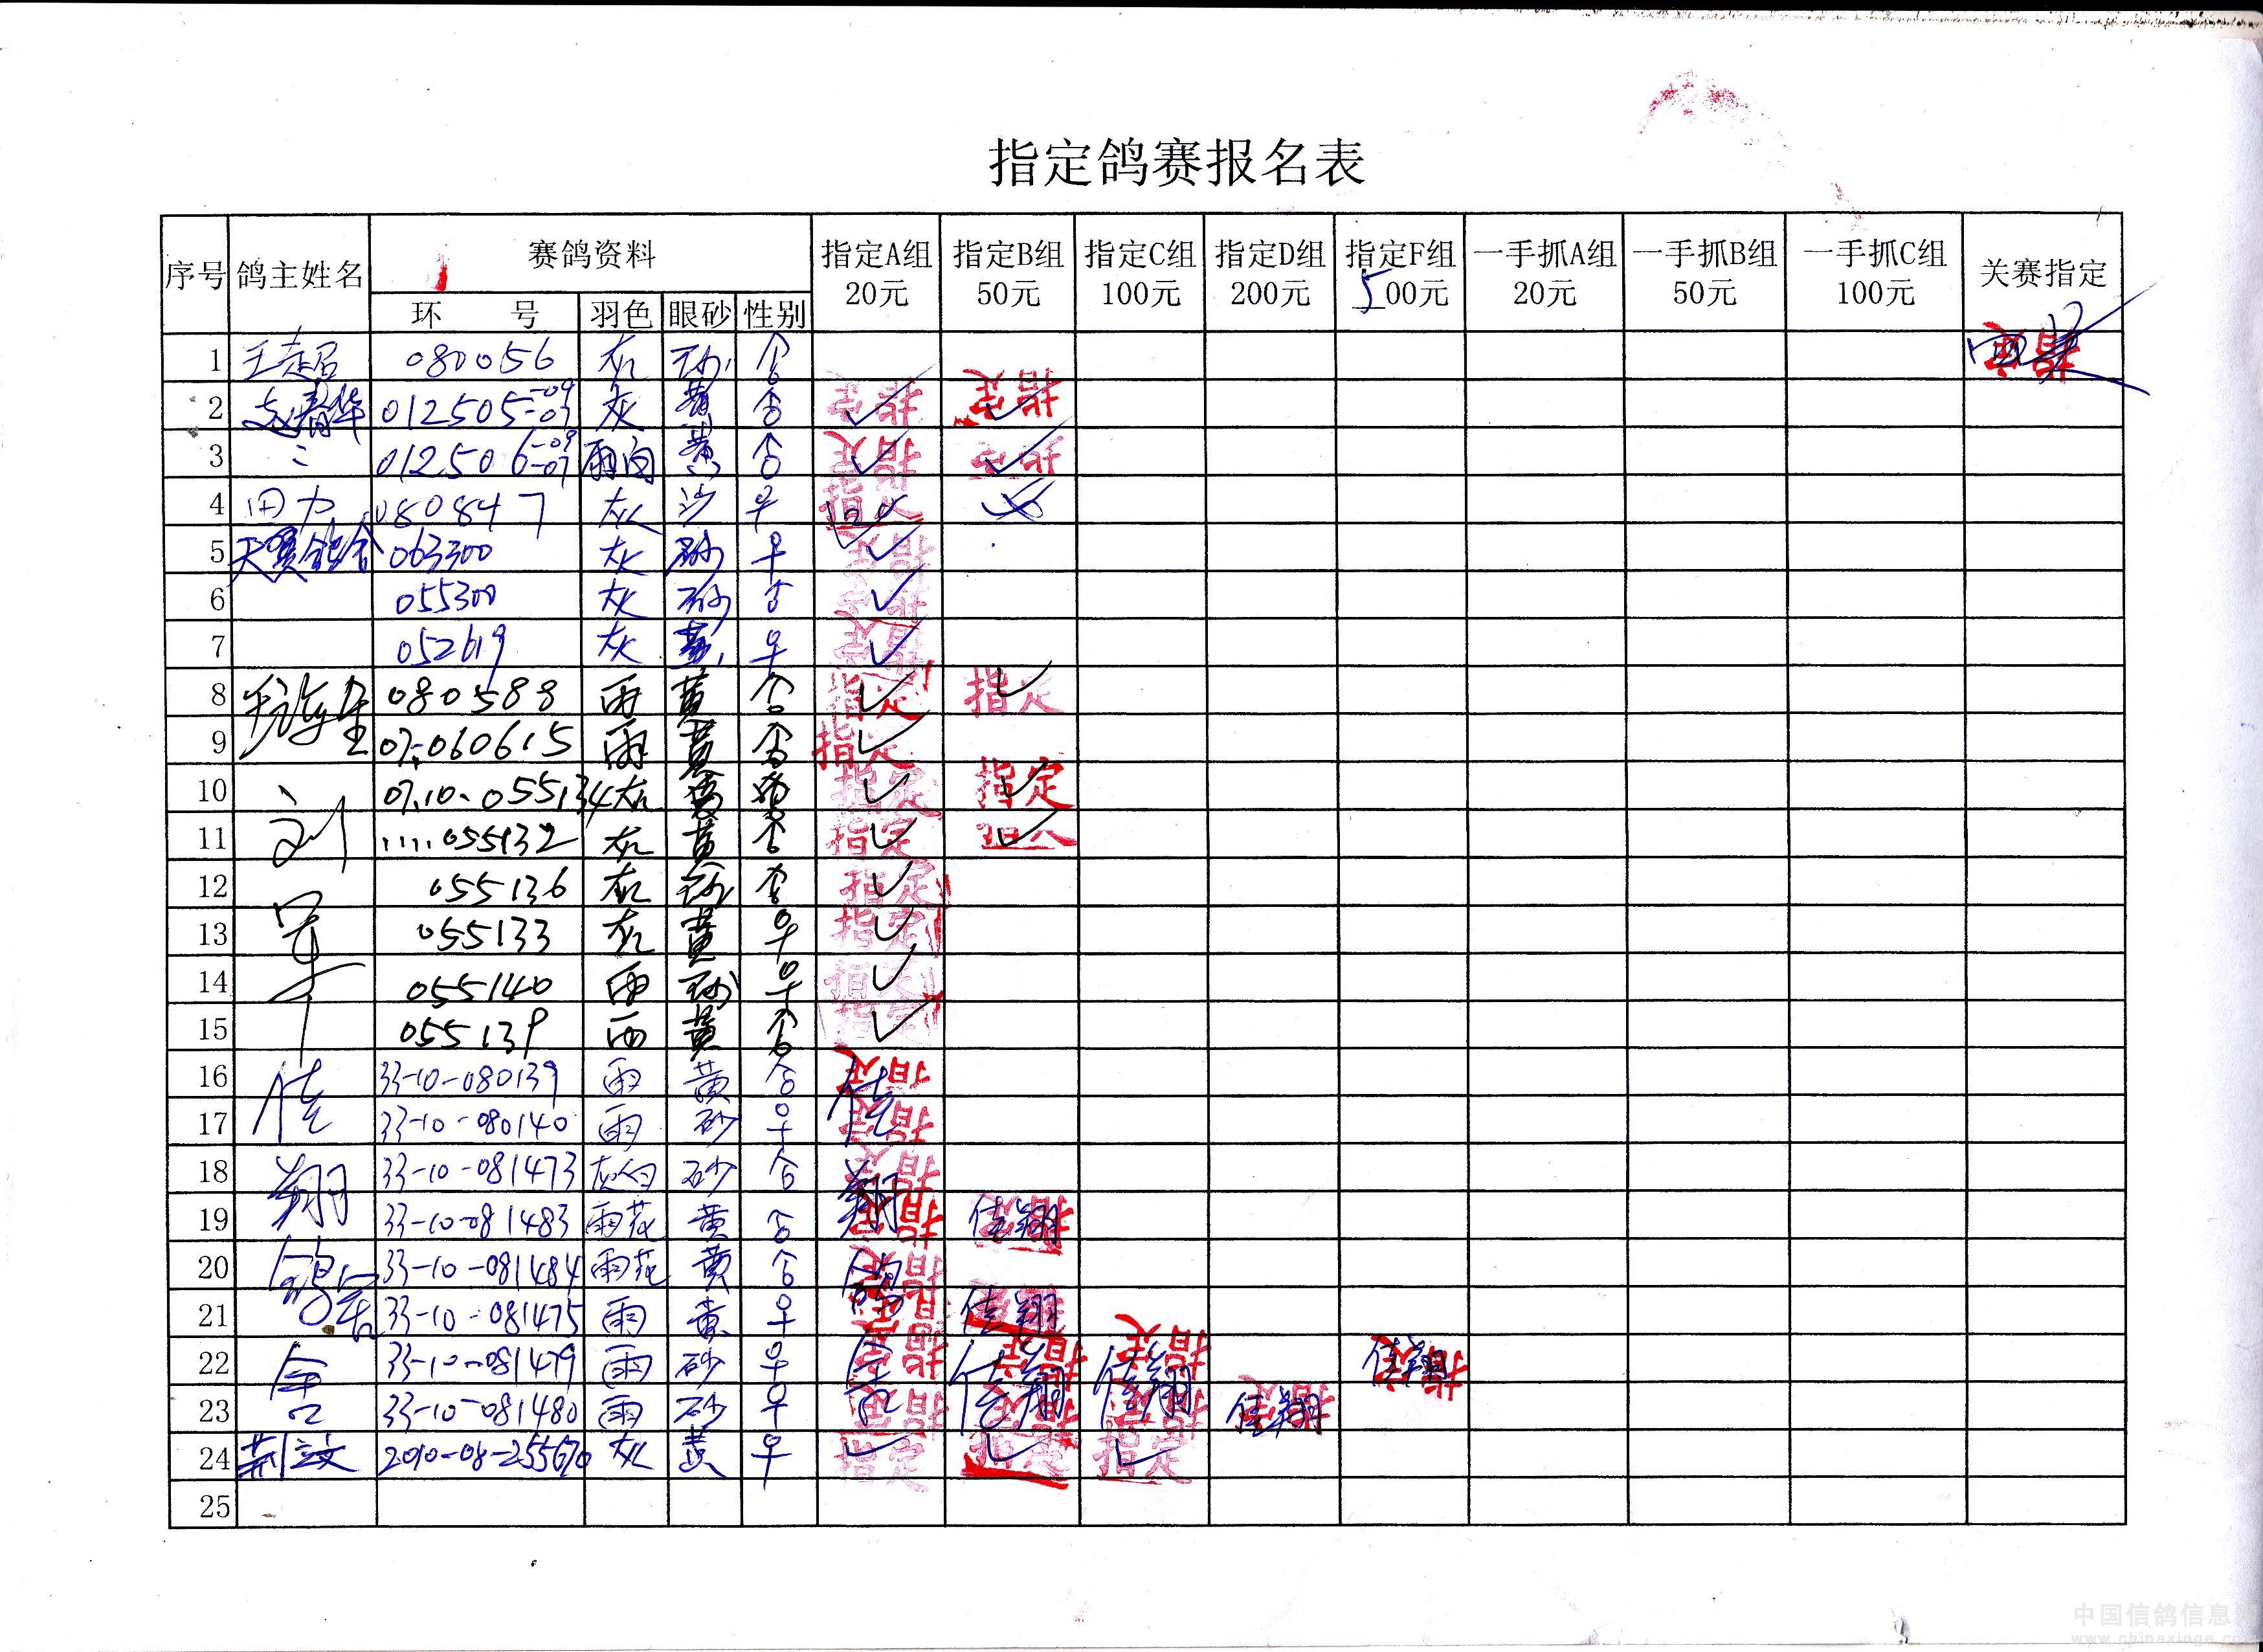 指定鸽赛报名表
序号 鸽主姓名 赛鸽资料 指定A组 20元 指定B组 50元 指定C组 100元 指定D组 200元 指定F组 500元 一手抓A组 20元 一手抓B组 50元 一手抓C组 100元 关赛指定
环 号 羽色 眼砂 性别
1 080056 灰 砂 ♂
2 赵春华 012505-09-07 灰 黄 ♂ 指定 ✓ 指定 ✓
3 012506-09-07 雨白 黄 ♂ 指定 ✓ 指定 ✓
4 田力 080847 灰 沙 ♀ 指定
5 天赐鸽舍 063300 灰 砂 ♀ 指定 ✓
6 055300 灰 砂 ♂ ✓
7 052619 灰 黄 ♀ 指定 ✓
8 080588 雨 黄 ♂ 指定 ✓ 指定 ✓
9 07-060615 雨 黄 ♂ 指定 ✓
10 刘 07.10.055134 灰 黄 指定 ✓ 指定 ✓
11 055132 灰 黄 ♂ 指定 ✓ 指定 ✓
12 055136 灰 砂 ♂ 指定 ✓
13 军 055133 灰 黄 ♀ 指定 ✓
14 055140 雨 砂 ♀ 指定 ✓
15 055139 雨 黄 ♂ 指定 ✓
16 佳 33-10-080139 雨 黄 ♂ 指定 佳
17 33-10-080140 雨 砂 ♀ 指定
18 翔 33-10-081473 灰白 砂 ♂ 指定 翔
19 33-10-081483 雨花 黄 ♂ 指定 佳翔 指定
20 鸽 33-10-081484 雨花 黄 ♂ 指定 鸽
21 33-10-081475 雨 黄 ♀ 指定 佳翔 指定
22 舍 33-10-081479 雨 砂 ♀ 指定 舍 指定 佳翔 指定 佳翔 指定 佳翔
23 33-10-081480 雨 砂 ♀ 指定 指定 指定 指定 佳翔
24 荆文 2010-08-255670 灰 黄 ♀ 指定 ✓ 指定 ✓ 指定 ✓
25
中国信鸽信息
www.chinaxinge.com